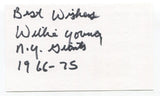 Best Wishes
Willie Young
N.Y. Giants
1966-75